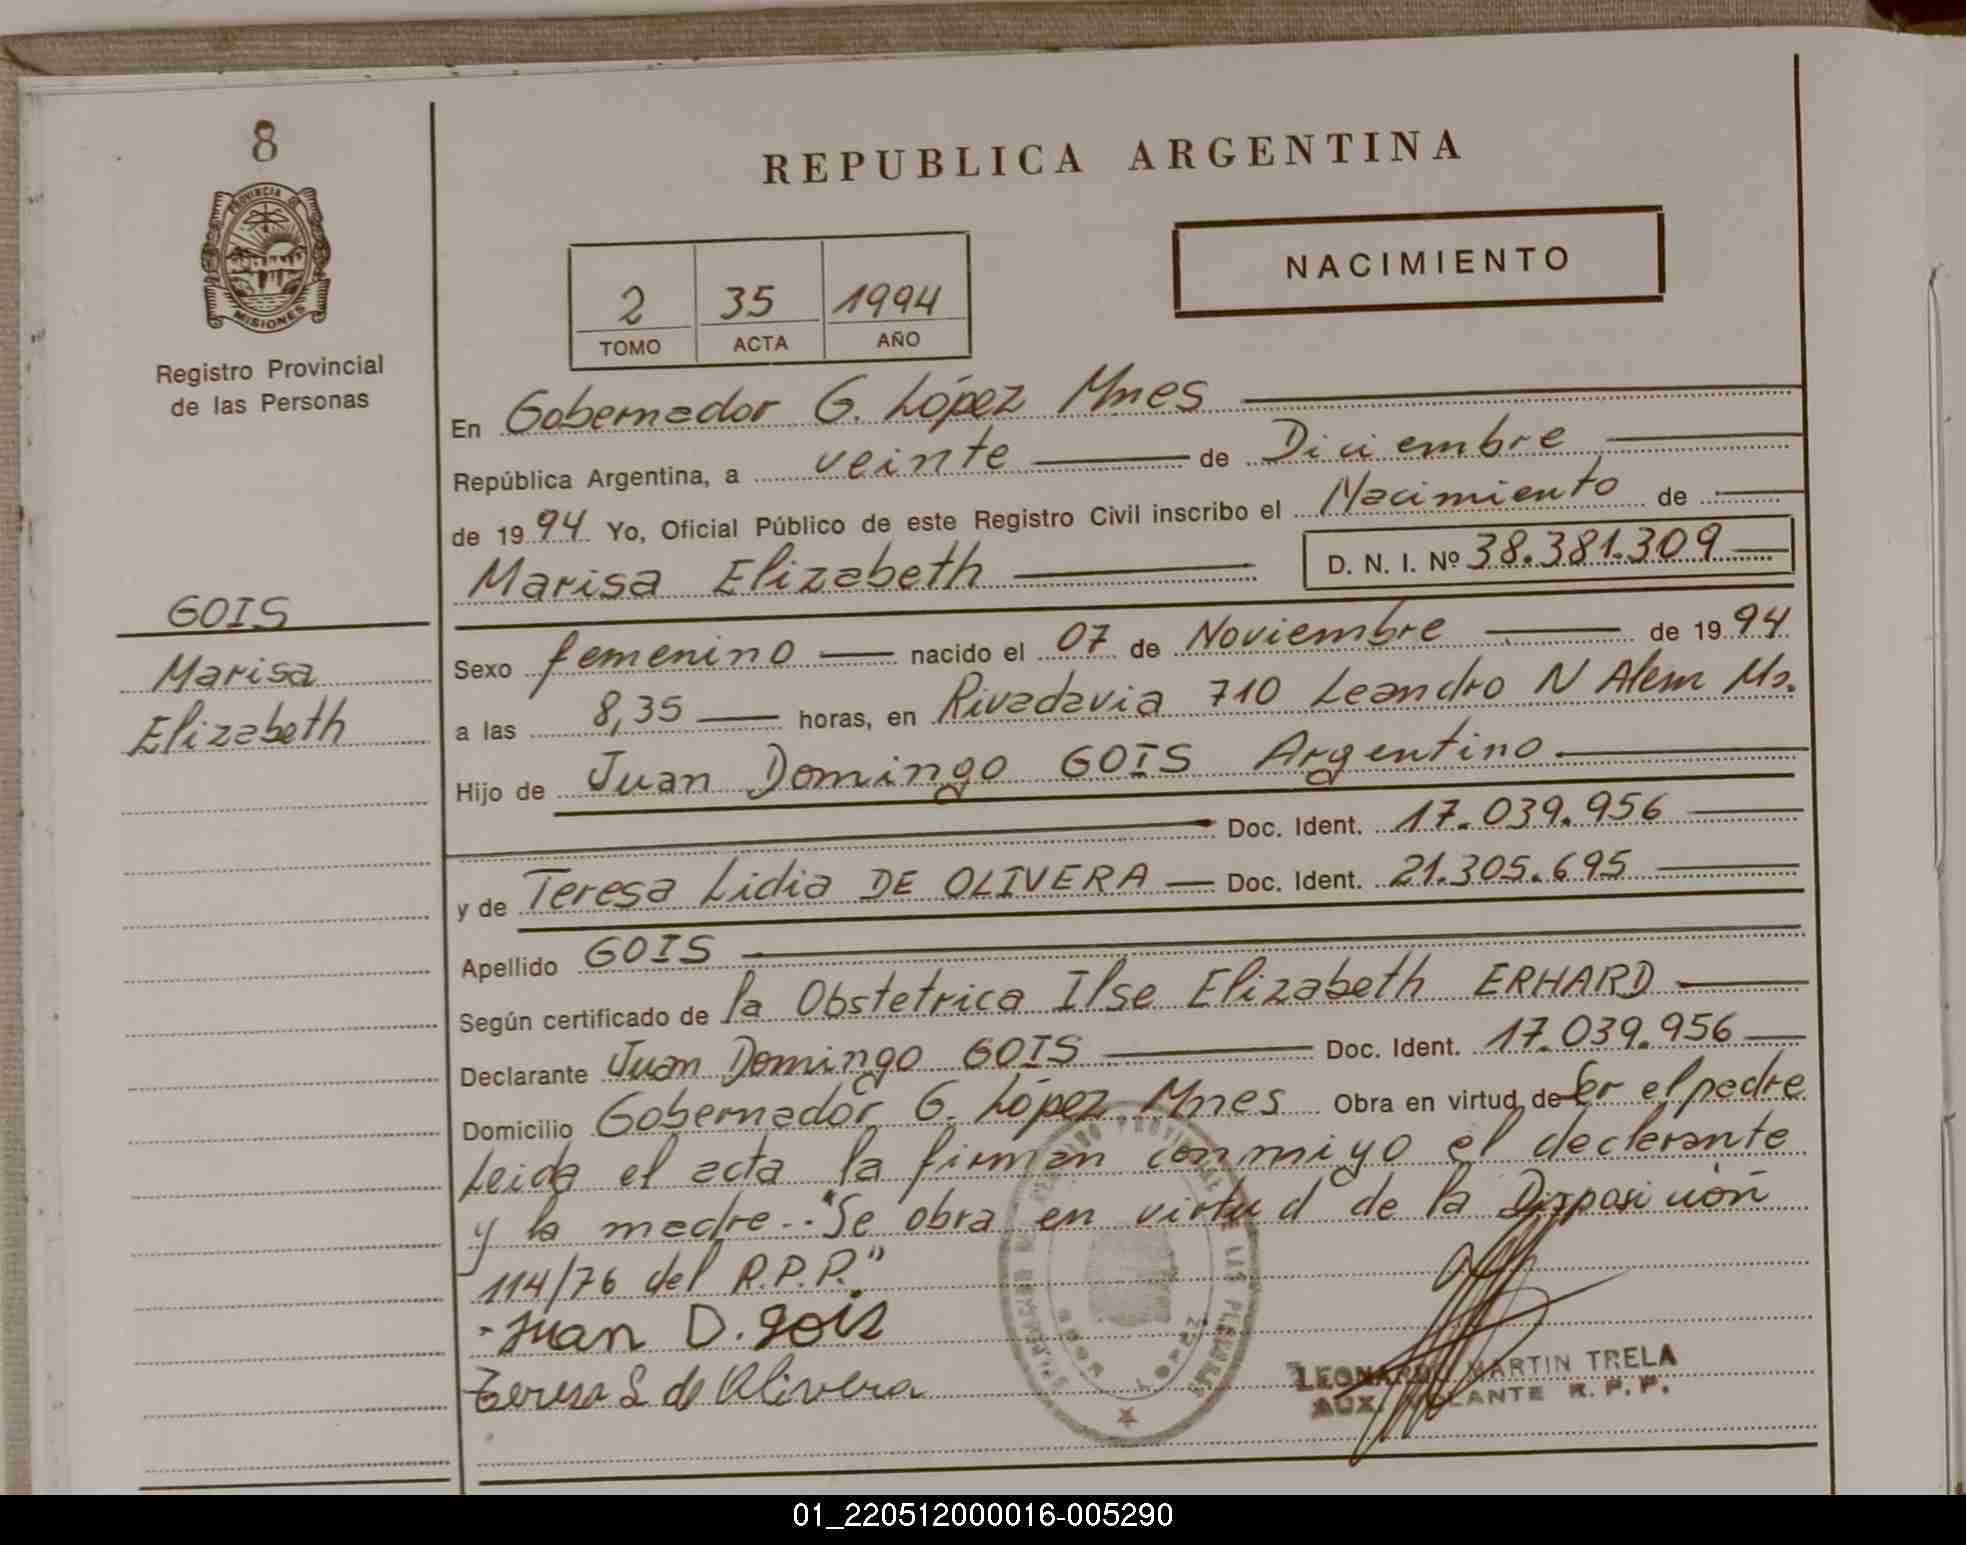 8
PROVINCIA DE
MISIONES
Registro Provincial
de las Personas
REPUBLICA ARGENTINA
NACIMIENTO
2 35 1994
TOMO ACTA AÑO
En Gobernador G. López Mnes
República Argentina, a veinte de Diciembre
de 1994 Yo, Oficial Público de este Registro Civil inscribo el Nacimiento de
Marisa Elizabeth D. N. I. Nº 38.381.309
GOIS
Marisa
Elizabeth
Sexo femenino nacido el 07 de Noviembre de 1994
a las 8,35 horas, en Rivadavia 710 Leandro N Alem Ms.
Hijo de Juan Domingo GOIS Argentino
Doc. Ident. 17.039.956
y de Teresa Lidia DE OLIVERA Doc. Ident. 21.305.695
Apellido GOIS
Según certificado de la Obstetrica Ilse Elizabeth ERHARD
Declarante Juan Domingo GOIS Doc. Ident. 17.039.956
Domicilio Gobernador G. López Mnes Obra en virtud de Ser el padre
Leida el acta la firman conmigo el declarante
y la madre.-"Se obra en virtud de la Disposición
114/76 del R.P.P."
-Juan D. gois
Teresa L de Olivera
LEONARDO MARTIN TRELA
AUX. R. P. P.
01_220512000016-005290